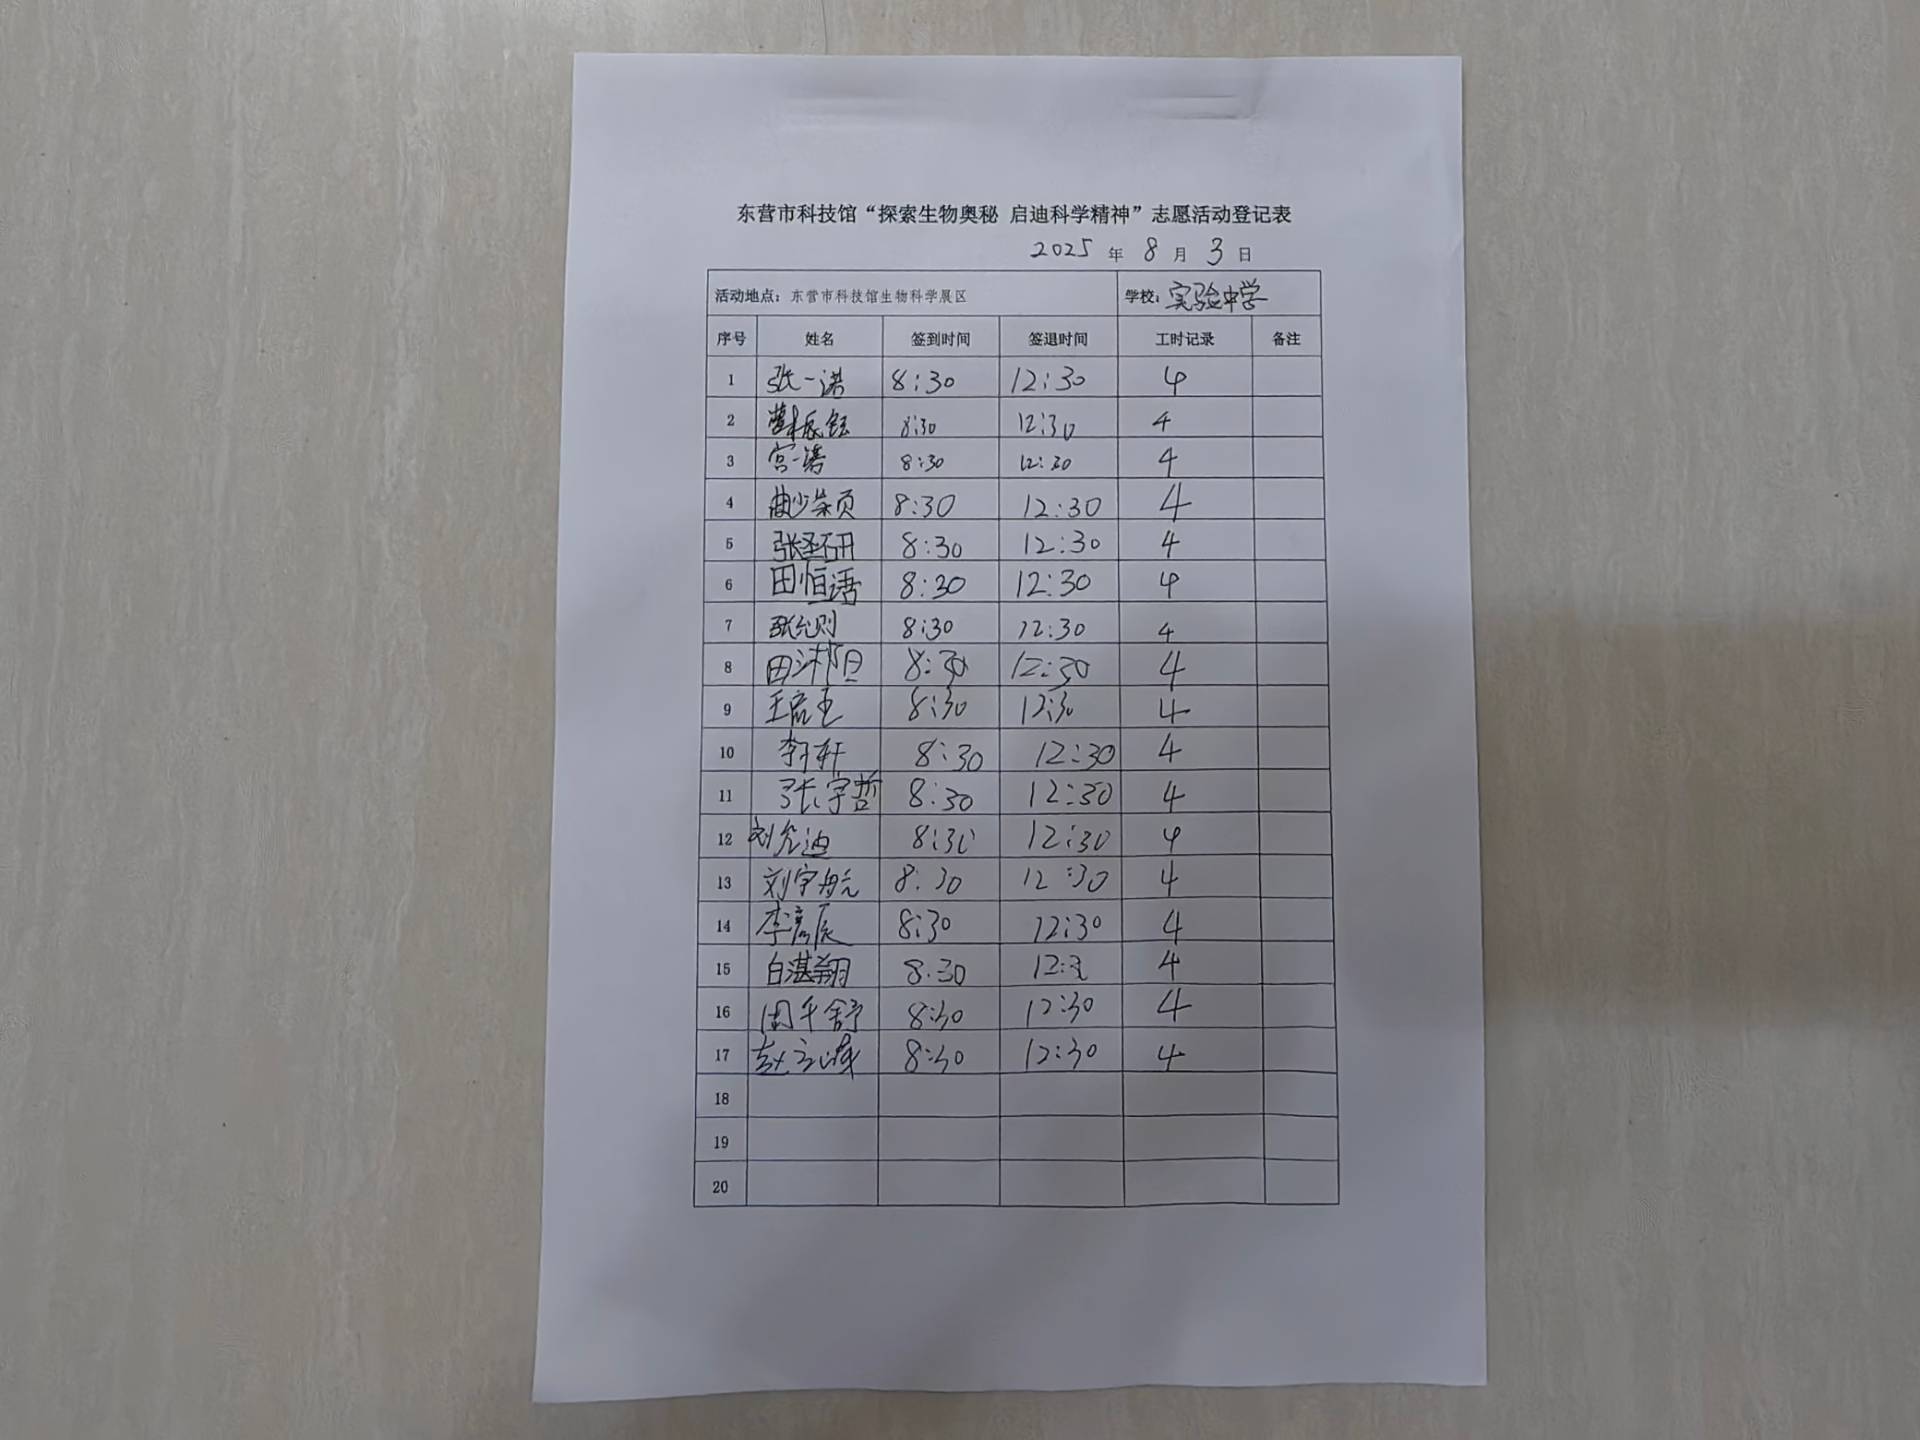 东营市科技馆“探索生物奥秘 启迪科学精神”志愿活动登记表
2025 年 8 月 3 日
活动地点：东营市科技馆生物科学展区 学校：实验中学
序号 姓名 签到时间 签退时间 工时记录 备注
1 张一诺 8:30 12:30 4
2 8:30 12:30 4
3 宫一诺 8:30 12:30 4
4 8:30 12:30 4
5 张圣研 8:30 12:30 4
6 田恒语 8:30 12:30 4
7 张允则 8:30 12:30 4
8 田 8:30 12:30 4
9 王 8:30 12:30 4
10 轩 8:30 12:30 4
11 张宇哲 8:30 12:30 4
12 刘允迪 8:30 12:30 4
13 刘宇航 8:30 12:30 4
14 李彦辰 8:30 12:30 4
15 白湛翔 8:30 12:30 4
16 周千舒 8:30 12:30 4
17 赵 8:30 12:30 4
18
19
20